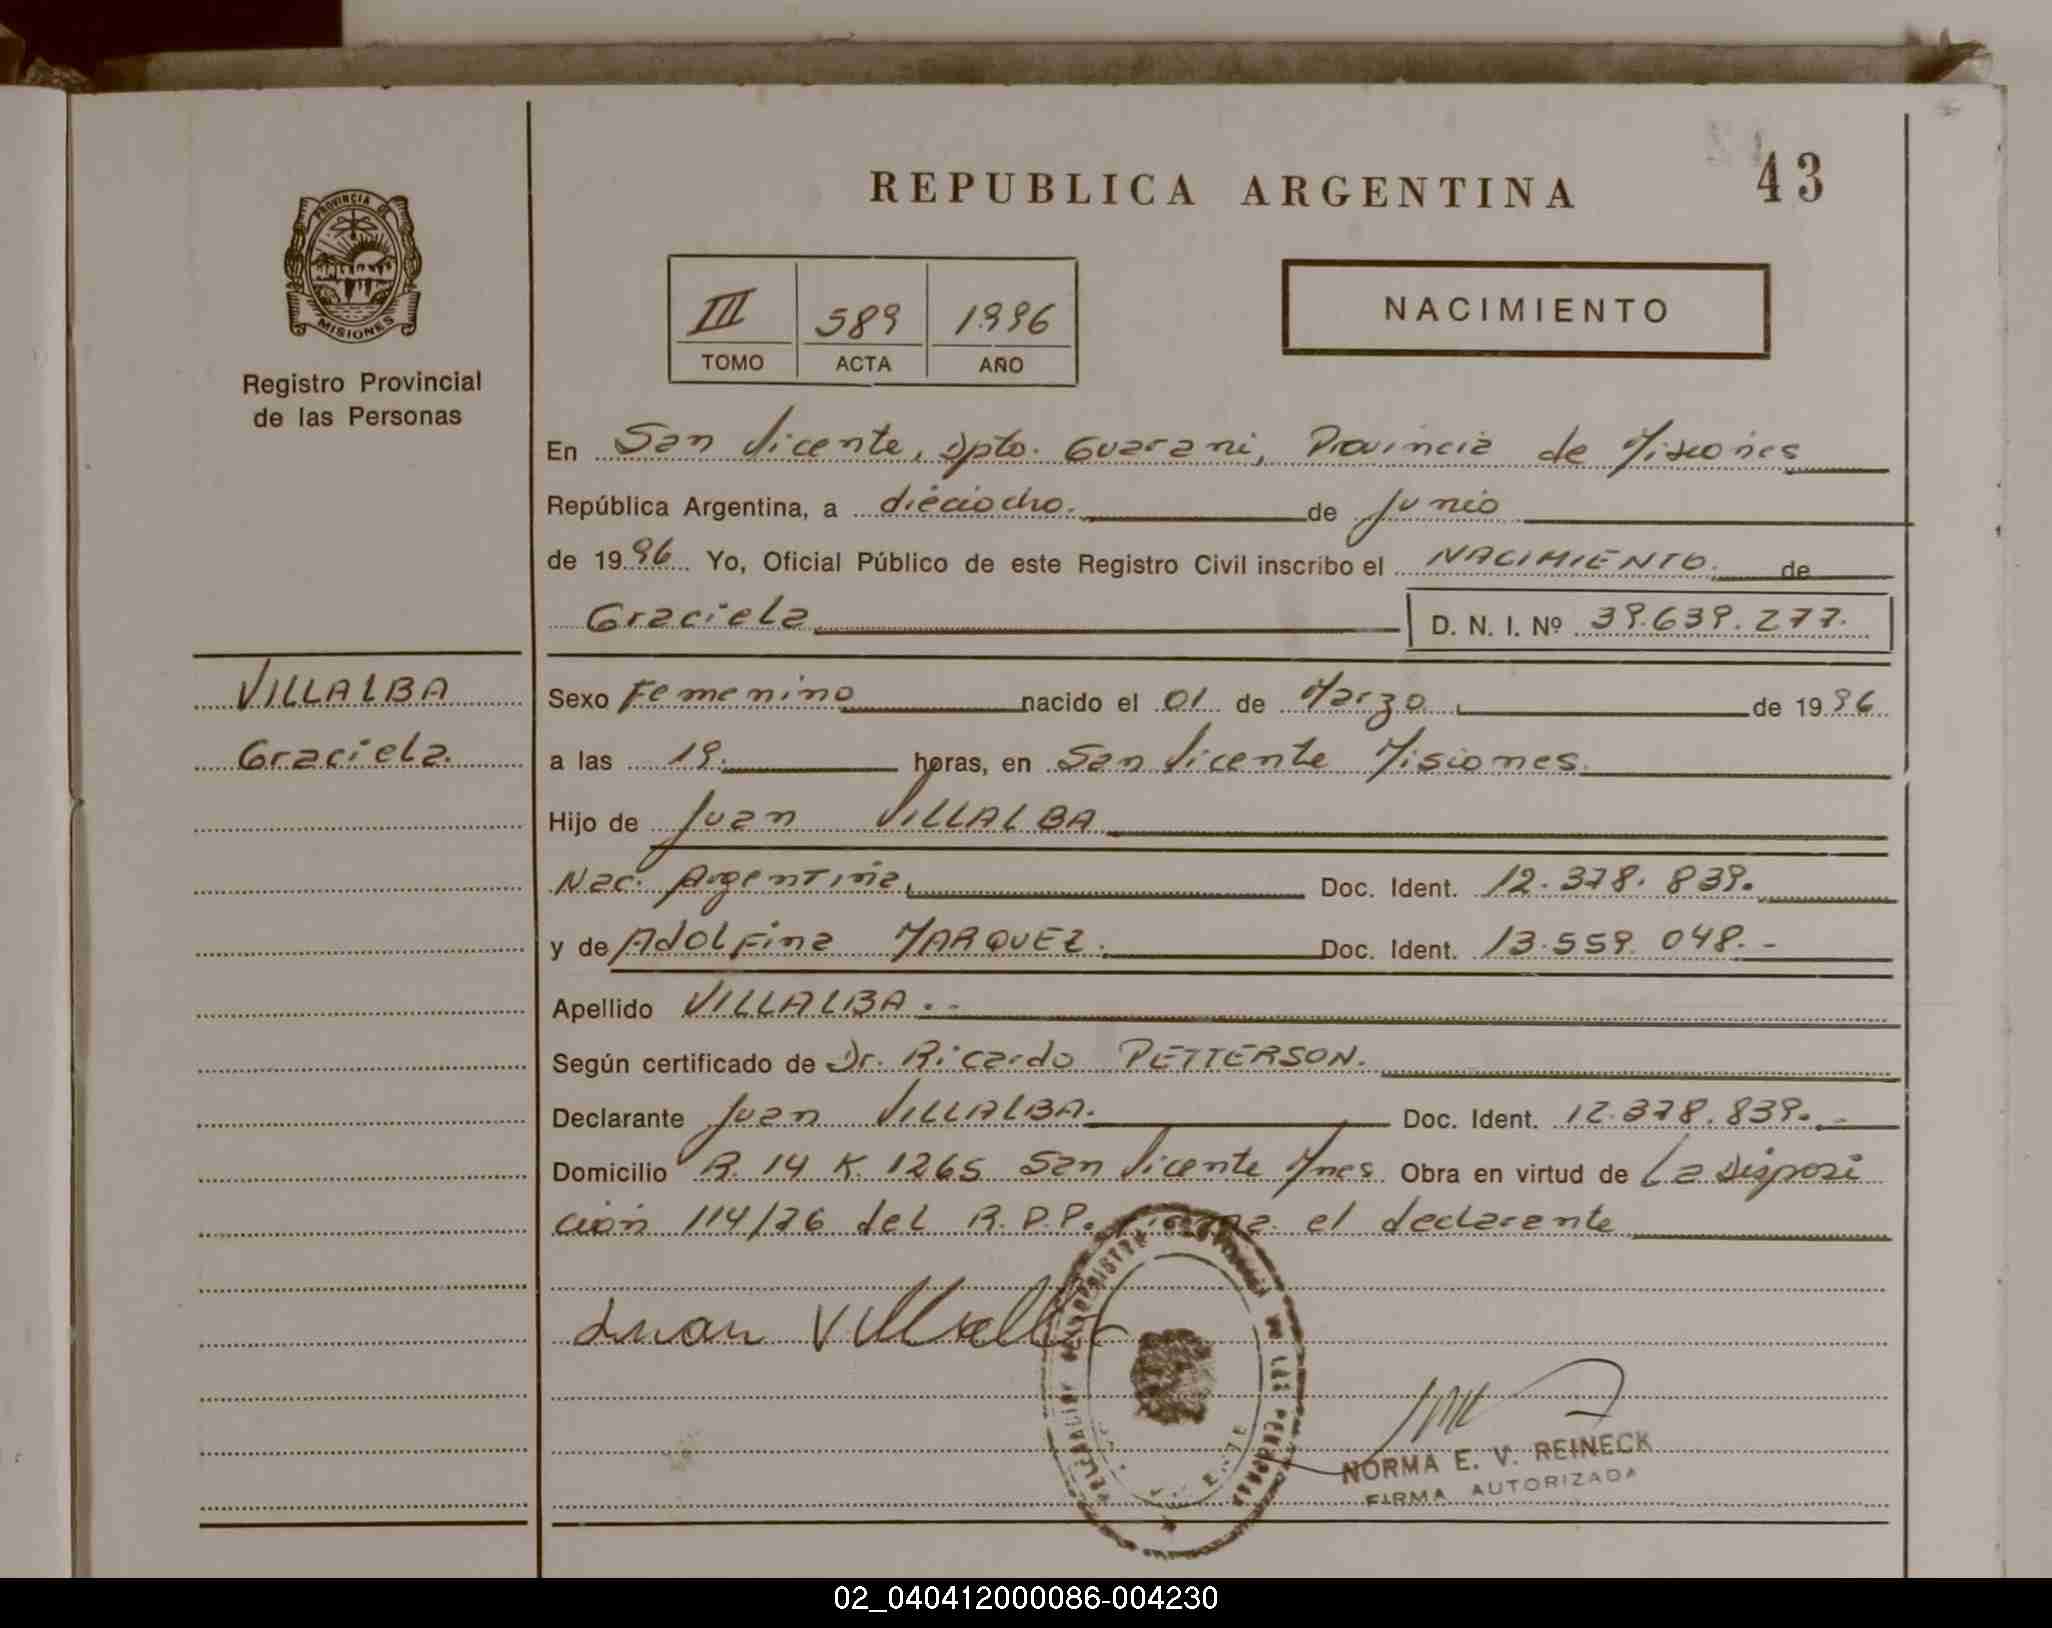 43
REPUBLICA ARGENTINA
PROVINCIA DE
MISIONES
Registro Provincial
de las Personas
III 589 1996
TOMO ACTA AÑO
NACIMIENTO
En San Vicente, Dpto. Guarani, Provincia de Misiones
República Argentina, a dieciocho. de Junio
de 1996 Yo, Oficial Público de este Registro Civil inscribo el NACIMIENTO. de
Graciela D. N. I. Nº 39.639.277.
VILLALBA
Graciela.
Sexo Femenino nacido el 01 de Marzo de 1996
a las 19. horas, en San Vicente Misiones.
Hijo de Juan VILLALBA
Nac. Argentina, Doc. Ident. 12.378.839.
y de Adolfina MARQUEZ. Doc. Ident. 13.559.048.-
Apellido VILLALBA.--
Según certificado de Dr. Ricardo PETTERSON.
Declarante Juan VILLALBA. Doc. Ident. 12.378.839.-
Domicilio R. 14 K. 1265 San Vicente Mnes. Obra en virtud de La Disposi
ción 114/76 del R.P.P. el declarante
Juan Villalba
NORMA E. V. REINECK
FIRMA AUTORIZADA
02_040412000086-004230